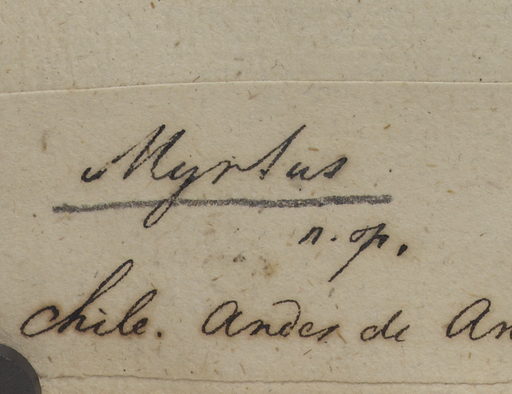 Myrtus
n. sp.
Chile. Andes de An